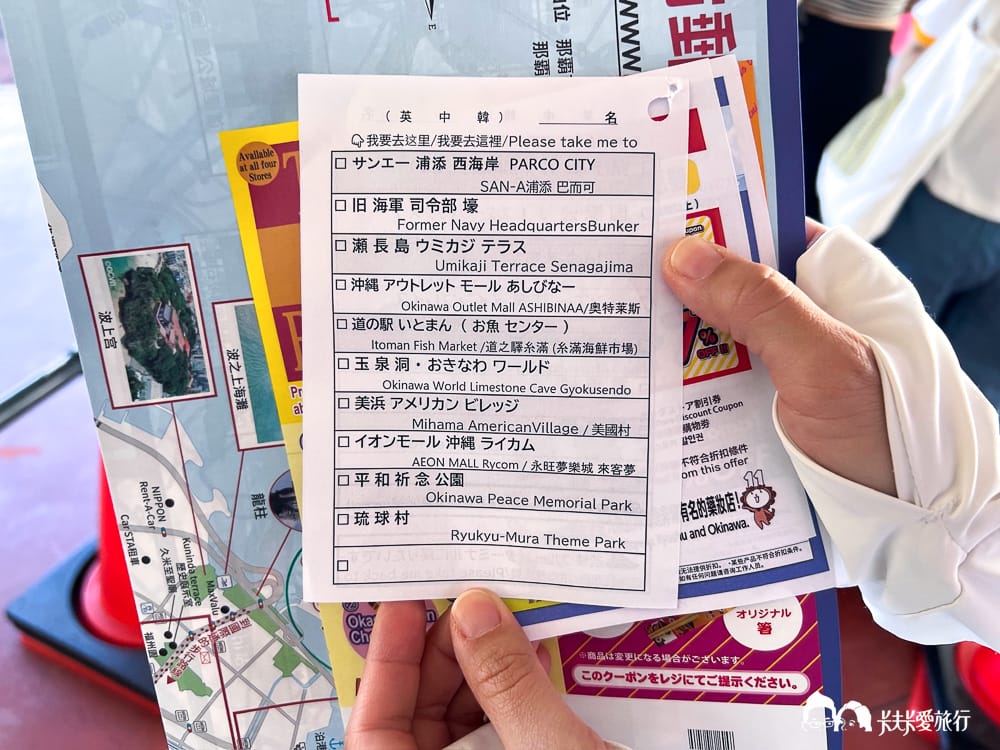 （ 英 中 韓 ） 名
我要去这里/我要去這裡/Please take me to
□ サンエー 浦添 西海岸 PARCO CITY
SAN-A浦添 巴而可
□ 旧 海軍 司令部 壕
Former Navy HeadquartersBunker
□ 瀬 長 島 ウミカジ テラス
Umikaji Terrace Senagajima
□ 沖縄 アウトレット モール あしびなー
Okinawa Outlet Mall ASHIBINAA/奥特莱斯
□ 道の駅 いとまん（ お魚 センター ）
Itoman Fish Market /道之驛糸滿 (糸滿海鮮市場)
□ 玉 泉 洞・おきなわ ワールド
Okinawa World Limestone Cave Gyokusendo
□ 美浜 アメリカン ビレッジ
Mihama AmericanVillage / 美國村
□ イオンモール 沖縄 ライカム
AEON MALL Rycom / 永旺夢樂城 來客夢
□ 平 和 祈 念 公園
Okinawa Peace Memorial Park
□ 琉 球 村
Ryukyu-Mura Theme Park
□
Available
at all four
Stores
www
那覇
波上宮
波之上海灘
龍柱
NIPPON
Rent-A-Car
Car STA租車
久米至聖廟
Kuninda terrace
歷史與示室
MaxValu
福州園
% OFF
ア割引券
iscount Coupon
購物券
할인권
不符合折扣條件
om this offer
有名的藥妝店!
u and Okinawa.
无法提供折扣。・某些产品不符合折扣条件。
如有任何问题请咨询工作人员。
オリジナル
箸
※商品は変更になる場合がございます。
このクーポンをレジにてご提示ください。
卡卡愛旅行